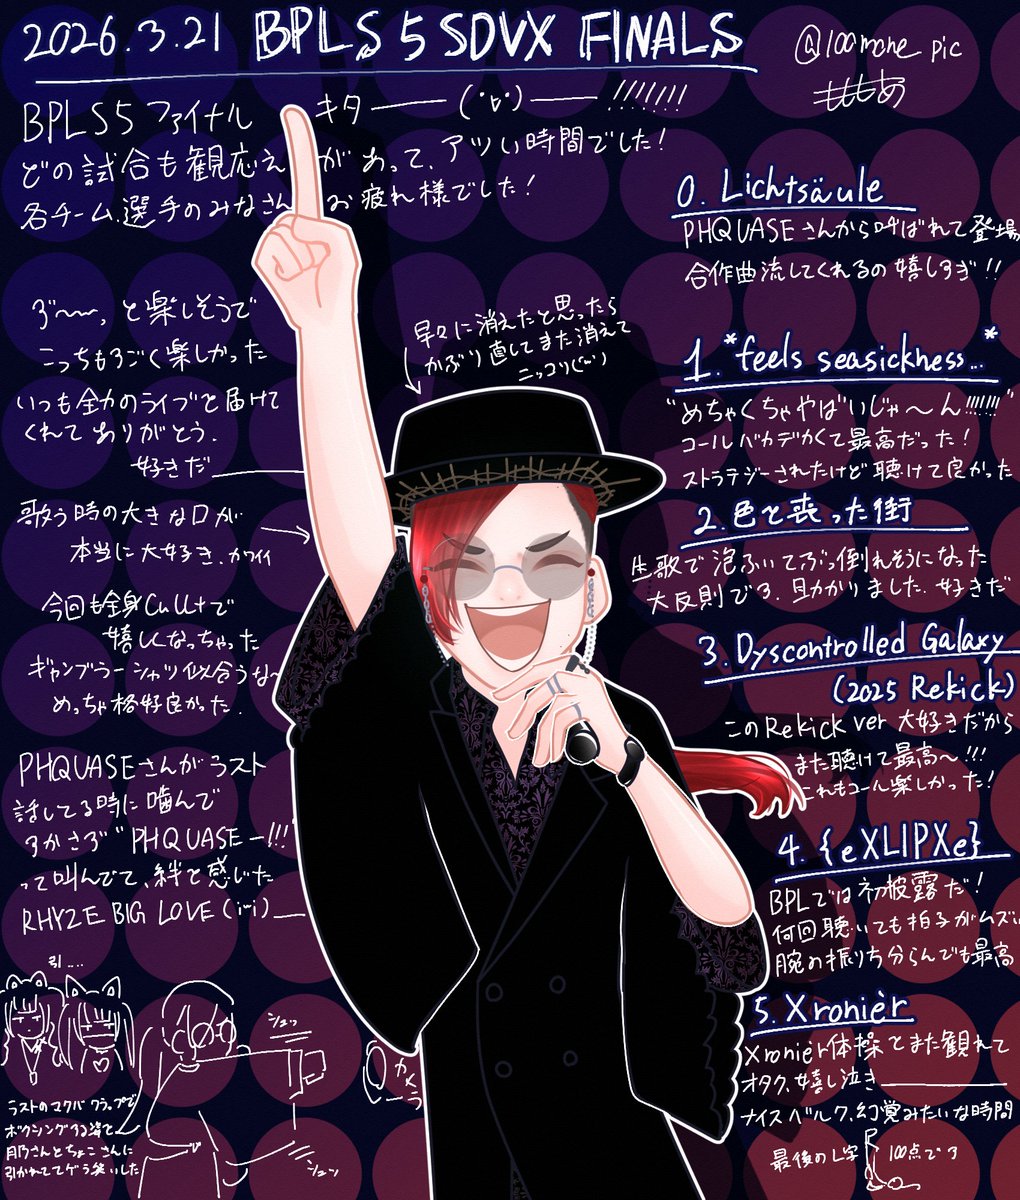 2026.3.21 BPLS5 SDVX FINALS
@100mone pic
BPLS5 ファイナル キター(゚∀゚)ー!!!!!!!
どの試合も観応えがあって、アツい時間でした!
各チーム、選手のみなさんお疲れ様でした!
ず〜〜っと楽しそうで
こっちもすごく楽しかった
いつも全力のライブを届けて
くれてありがとう.
好きだ
歌う時の大きな口が
本当に大好き.カワイイ
今回も全身Cultで
嬉しくなっちゃった
ギャンブラーシャツ似合うな〜
めっちゃ格好良かった.
PHQUASEさんがラスト
話してる時に噛んで
すかさず"PHQUASEー!!!"
って叫んでて、絆を感じた
RHYZE BIG LOVE
引....
シュッ
カメラ
シュン
ラストのマクバクラップで
ボクシングする姿を
乃さんとちょこさんに
引かれててゲラ笑いした
早々に消えたと思ったら
かぶり直してまた消えて
ニッコリ
0. Lichtsäule
PHQUASEさんから呼ばれて登場
合作曲流してくれるの嬉しすぎ!!
1. *feels seasickness...*
"めちゃくちゃやばいじゃ〜ん!!!!!!"
コールバカデカくて最高だった!
ストラテジーされたけど聴けて良かった
2. 色を喪った街
生歌で泡ふいてぶっ倒れそうになった
大反則です.助かりました.好きだ
3. Dyscontrolled Galaxy
(2025 Rekick)
このRekick ver 大好きだから
また聴けて最高〜!!!
これもコール楽しかった!
4. {eXLIPXe}
BPLでは初披露だ!
何回聴いても拍子がムズい
腕の振り方分らんでも最高
5. Xronièr
Xronièr体操をまた観れて
オタク、嬉し泣き
ナイスベルク、幻覚みたいな時間
最後のL字 100点です